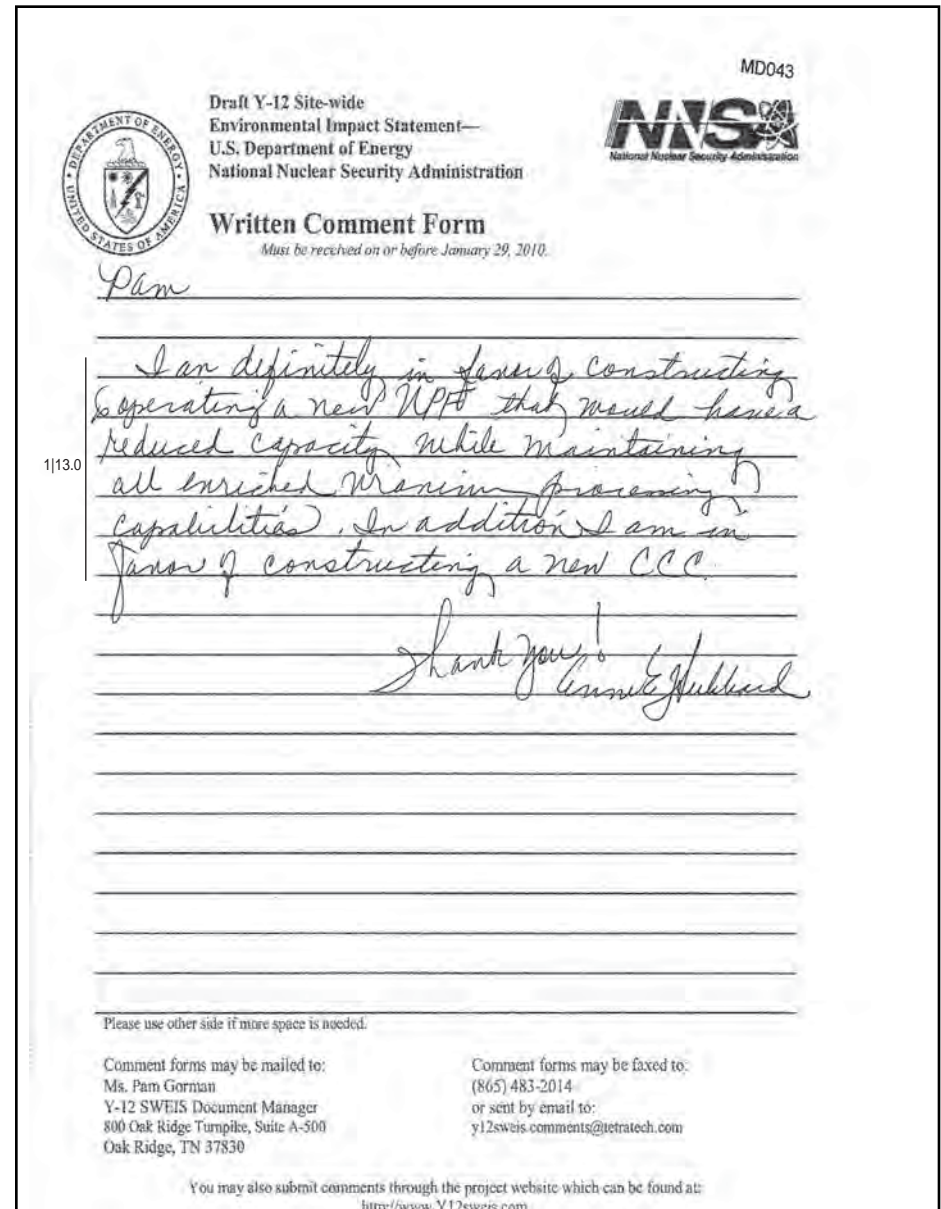 MD043
Draft Y-12 Site-wide
Environmental Impact Statement—
U.S. Department of Energy
National Nuclear Security Administration
DEPARTMENT OF ENERGY
UNITED STATES OF AMERICA
NNSA
National Nuclear Security Administration
Written Comment Form
Must be received on or before January 29, 2010.
Pam
I am definitely in favor of constructing
& operating a new UPF that would have a
reduced capacity while maintaining
1|13.0
all enriched uranium processing
capabilities. In addition I am in
favor of constructing a new CCC.
Thank you!
Annie E Hubbard
Please use other side if more space is needed.
Comment forms may be mailed to:
Ms. Pam Gorman
Y-12 SWEIS Document Manager
800 Oak Ridge Turnpike, Suite A-500
Oak Ridge, TN 37830
Comment forms may be faxed to:
(865) 483-2014
or sent by email to:
y12sweis.comments@tetratech.com
You may also submit comments through the project website which can be found at:
http://www.Y12sweis.com